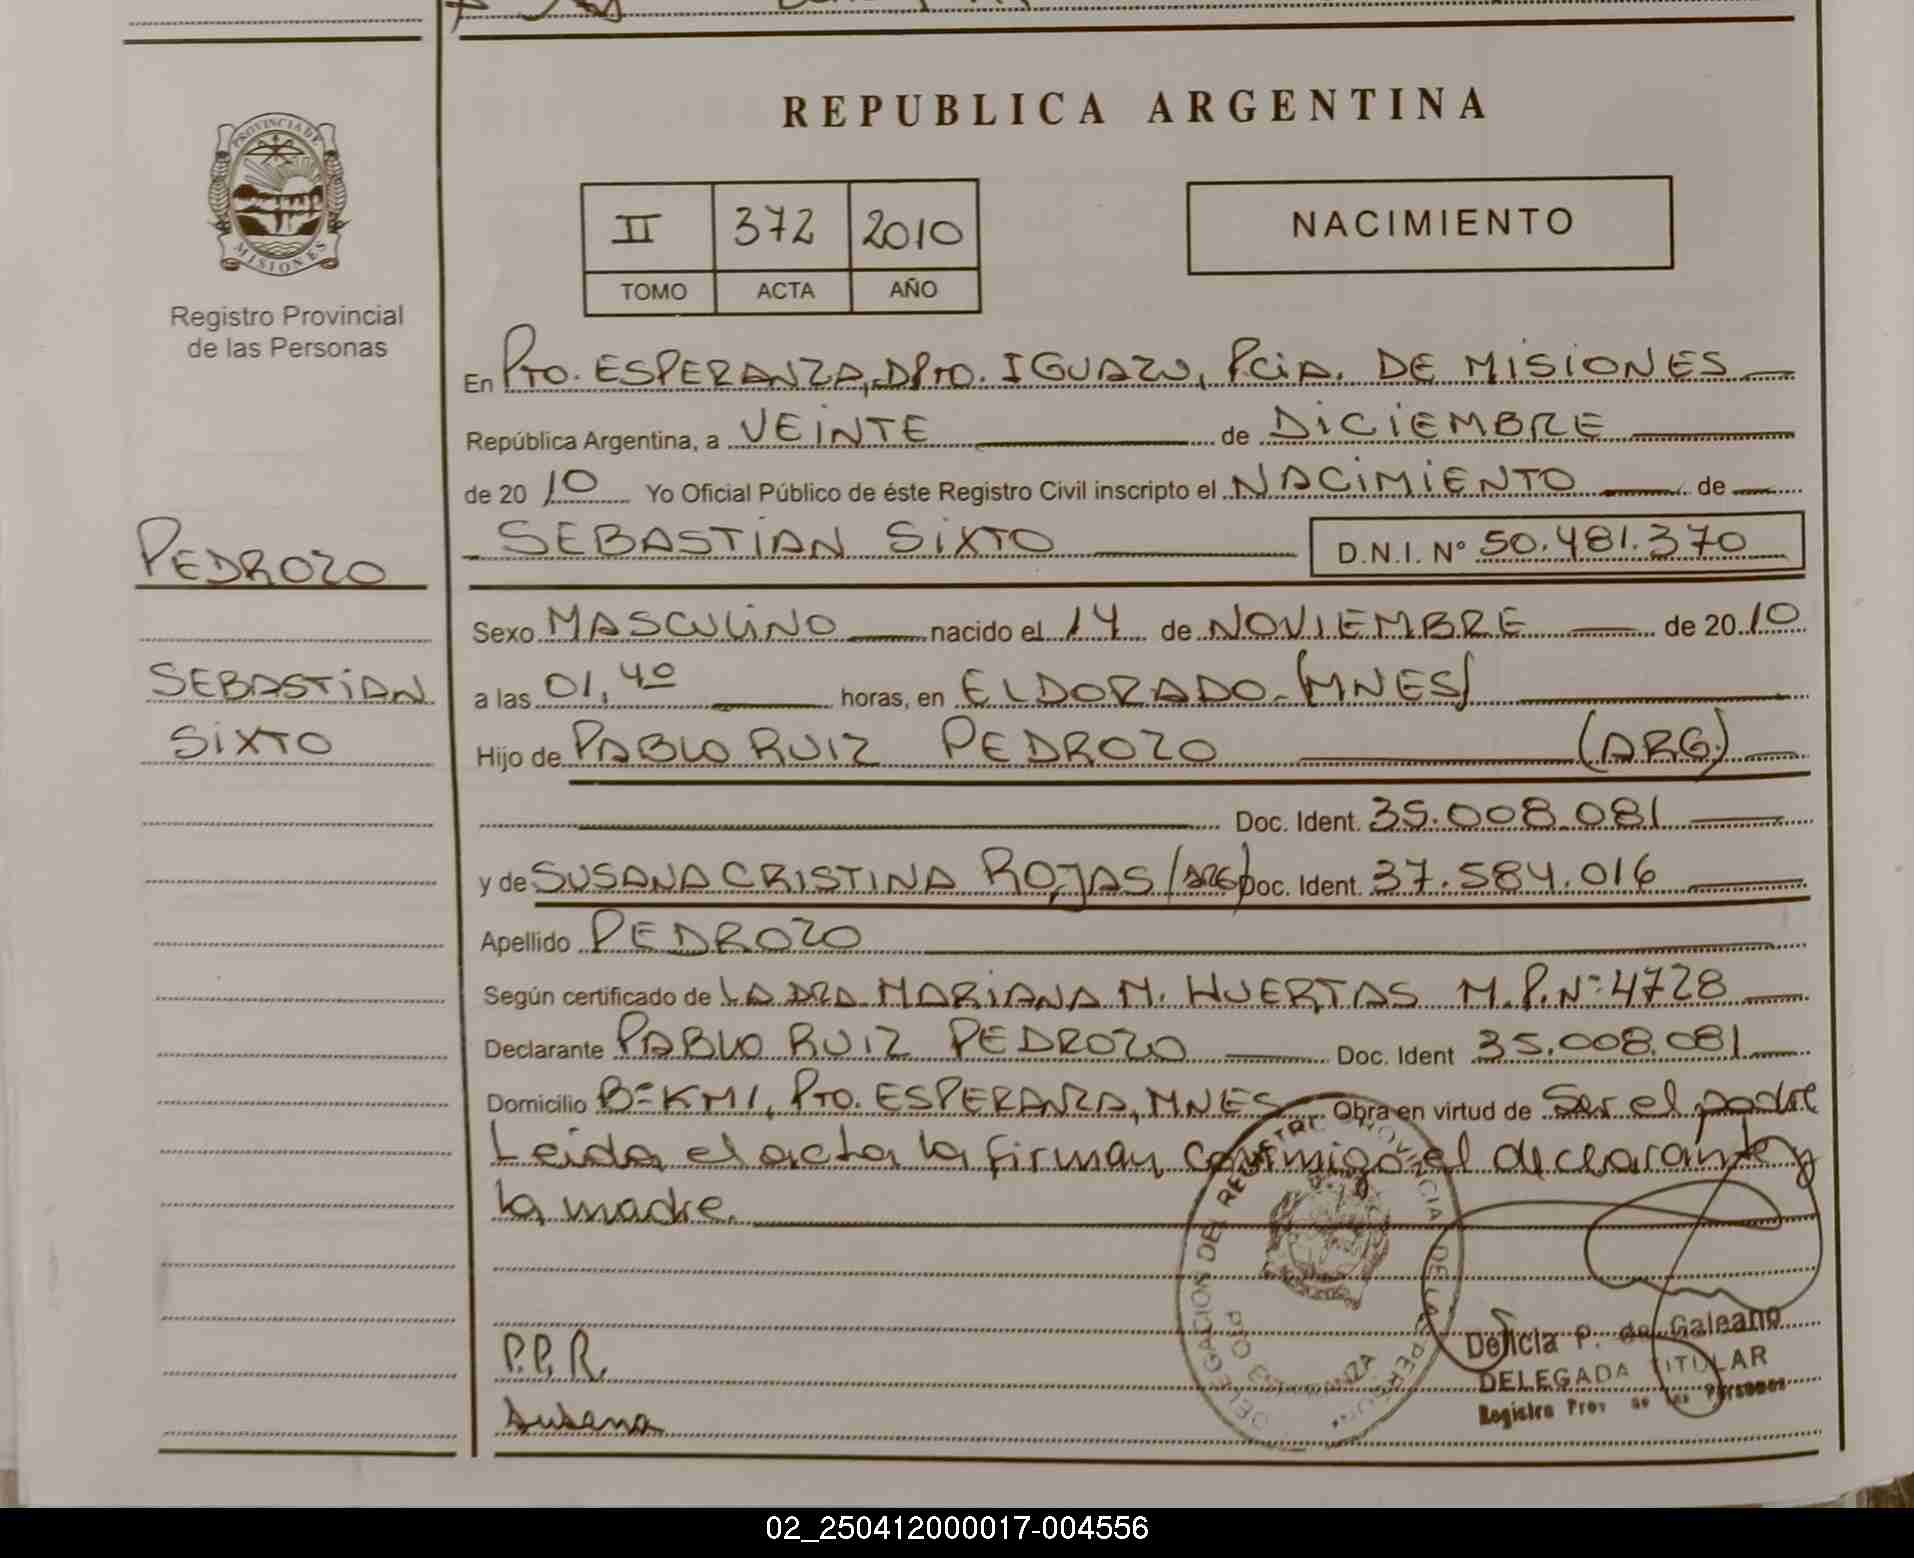 REPUBLICA ARGENTINA
PROVINCIA DE
MISIONES
Registro Provincial
de las Personas
II 372 2010
TOMO ACTA AÑO
NACIMIENTO
En Pto. ESPERANZA, DPTO. IGUAZU, Pcia. DE MISIONES
República Argentina, a VEINTE de DICIEMBRE
de 20 10 Yo Oficial Público de éste Registro Civil inscripto el NACIMIENTO de
SEBASTIAN SIXTO D.N.I. N° 50.481.370
PEDROZO
SEBASTIAN
SIXTO
Sexo MASCULINO nacido el 14 de NOVIEMBRE de 20 10
a las 01,40 horas, en ELDORADO-(MNES)
Hijo de PABLO RUIZ PEDROZO (ARG.)
Doc. Ident. 35.008.081
y de SUSANA CRISTINA ROJAS (ARG) Doc. Ident. 37.584.016
Apellido PEDROZO
Según certificado de LA DRA MARIANA M. HUERTAS M.P.Nº 4728
Declarante PABLO RUIZ PEDROZO Doc. Ident 35.008.081
Domicilio Bº KM1, Pto. ESPERANZA, MNES Obra en virtud de Ser el padre
Leida el acta la firman conmigo el declarante y
la madre.
DELEGACION DEL REGISTRO PROVINCIAL DE LAS PERSONAS
PTO ESPERANZA
P.P.R.
Susana
Delicia P. de Galeano
DELEGADA TITULAR
Registro Prov de las Personas
02_250412000017-004556